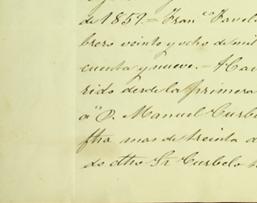 de 1859 - Fran.co Favelo
brero veinte y ocho de mil
cuenta y nueve. - Hau
rido desde la primera
a D. Manuel Curbe
fha mas de treinta d
do dho Sr Curbelo